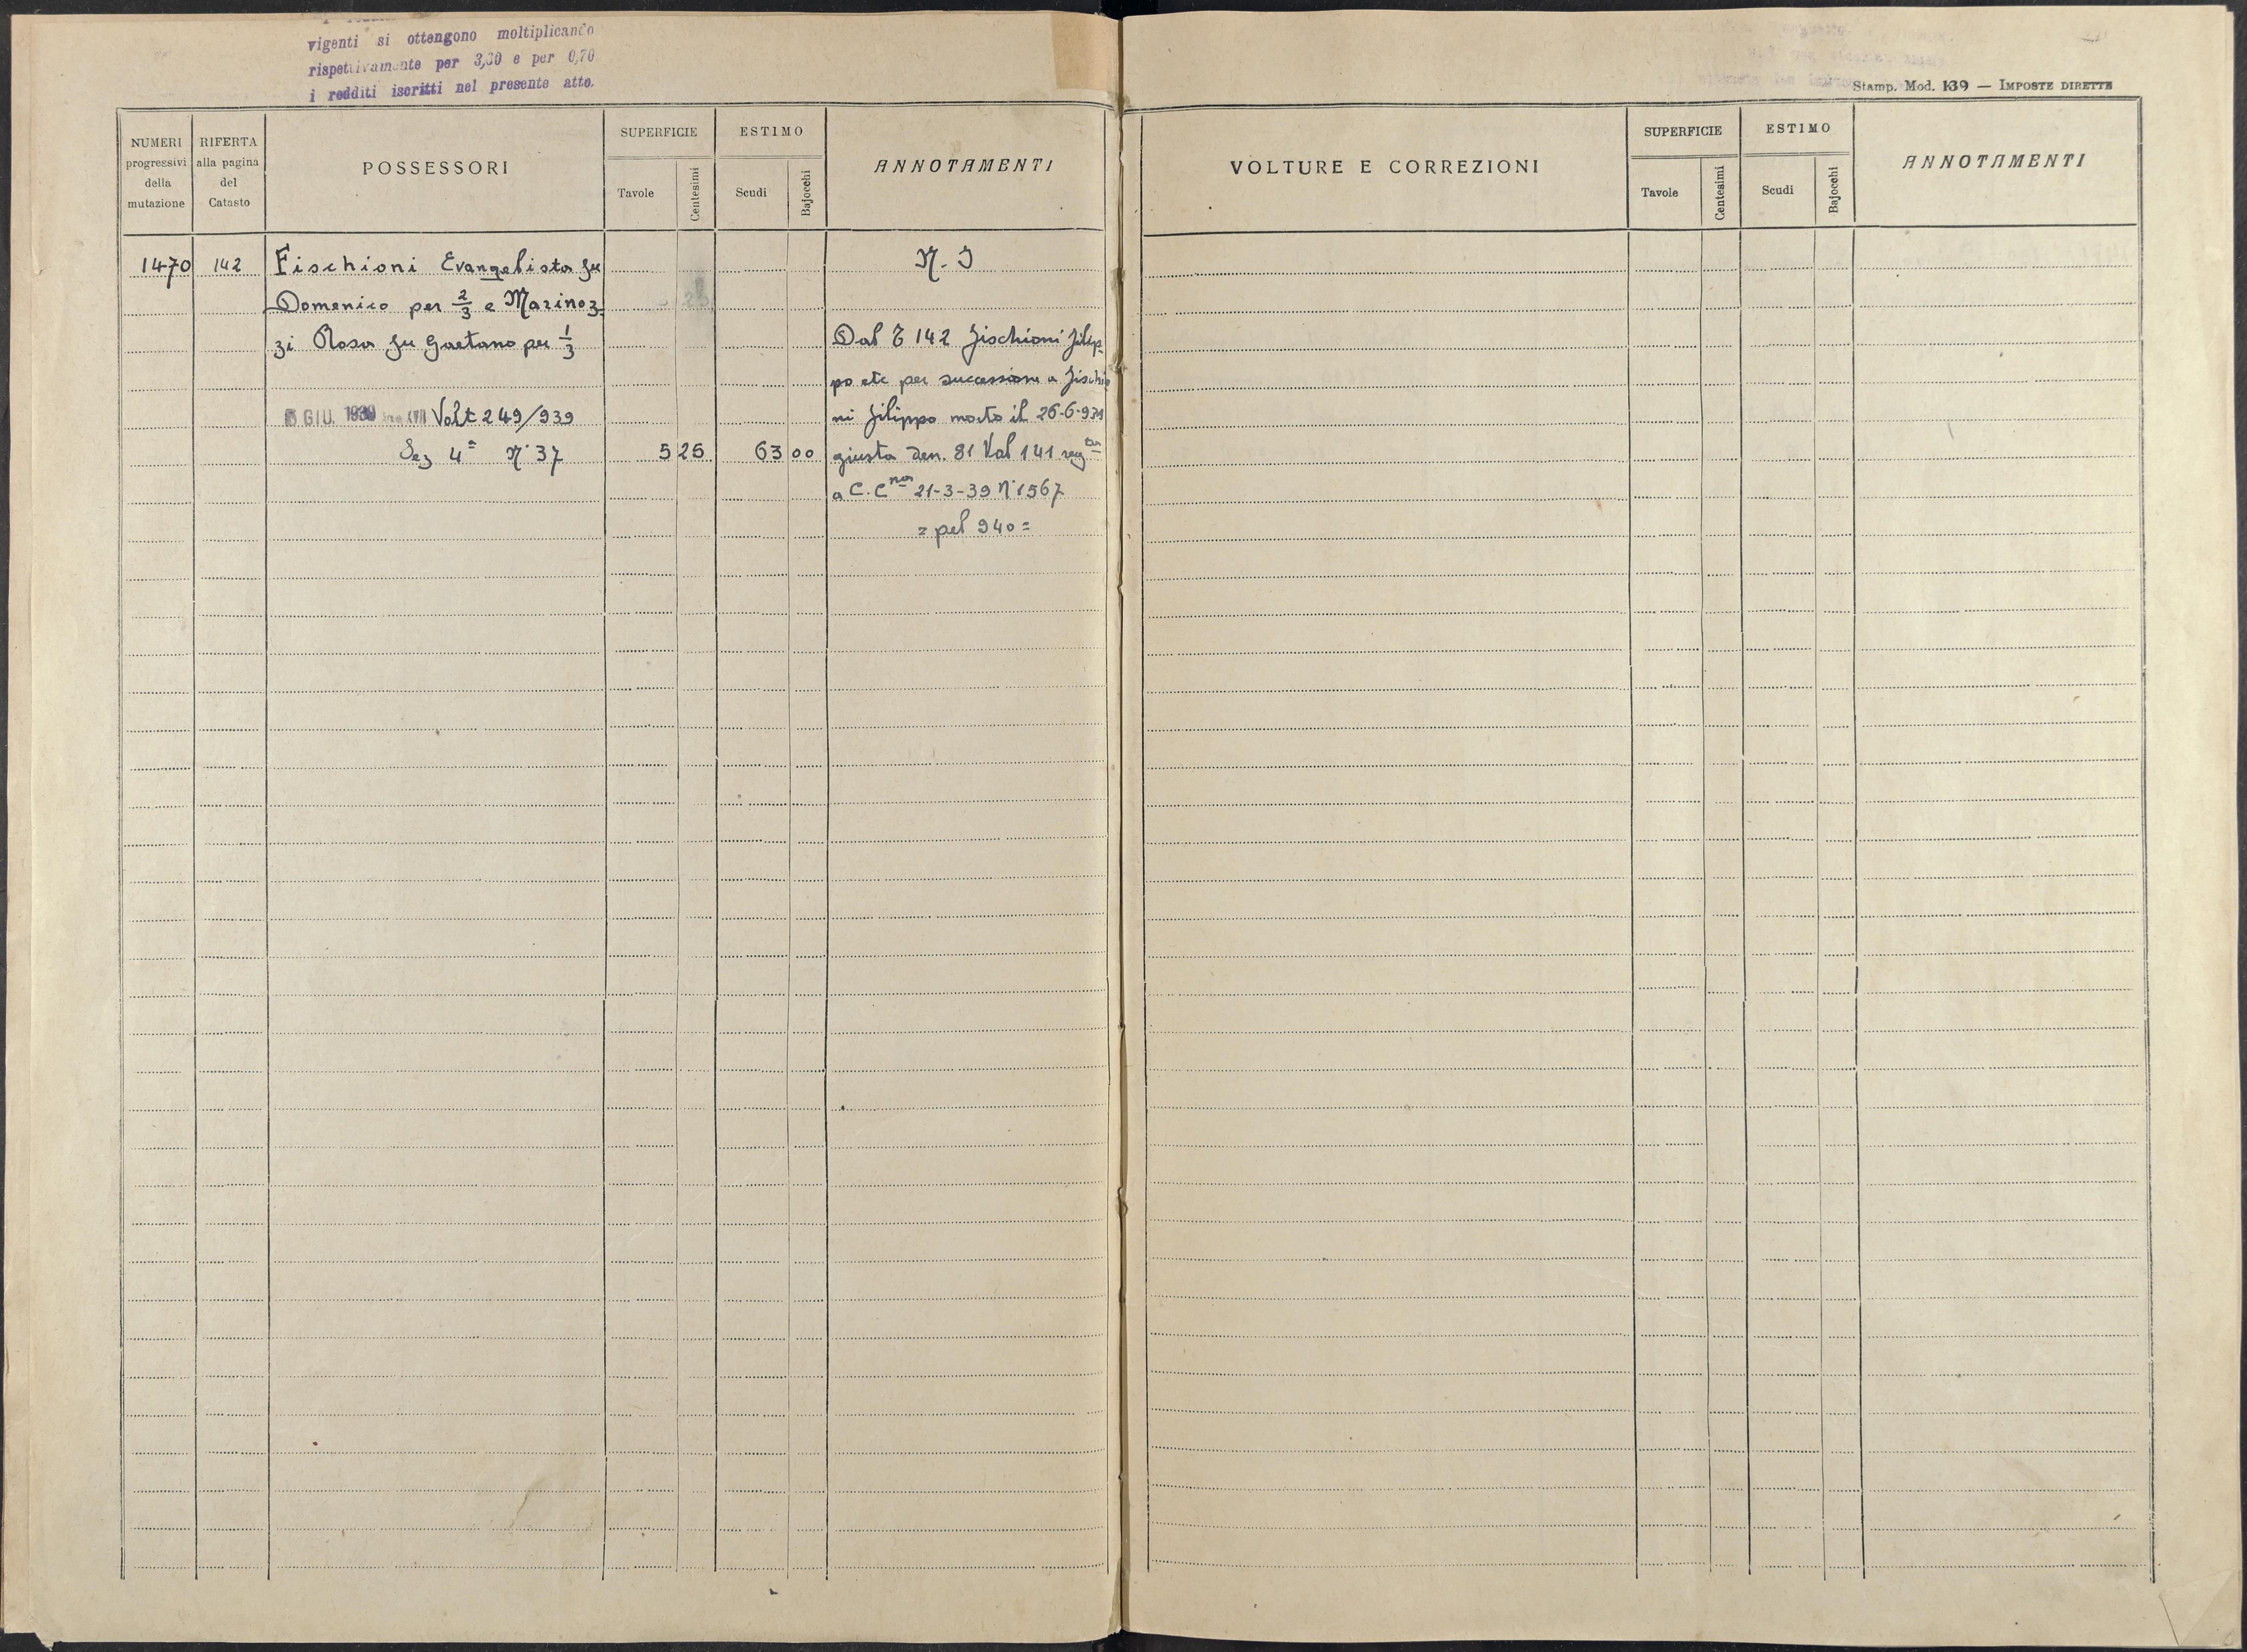 vigenti si ottengono moltiplicando
rispettivamente per 3,30 e per 0,70
i redditi iscritti nel presente atto.
Stamp. Mod. 139 — IMPOSTE DIRETTE
NUMERI progressivi della mutazione
RIFERTA alla pagina del Catasto
POSSESSORI
SUPERFICIE
Tavole
Centesimi
ESTIMO
Scudi
Bajocchi
ANNOTAMENTI
VOLTURE E CORREZIONI
SUPERFICIE
Tavole
Centesimi
ESTIMO
Scudi
Bajocchi
ANNOTAMENTI
1470 142 Fischioni Evangelista fu N. I
Domenico per 2/3 e Marinoz
zi Rosa fu Gaetano per 1/3 Dal T 142 Fischioni Filip
po etc per successione a Fischio
5 GIU. 1939 Volt 249/939 ni Filippo morto il 26-6-931
Sez 4ª N° 37 5 25 63 00 giusta den. 81 Vol 141 reg ta
a C.C na 21-3-39 N° 1567
= pel 940 =